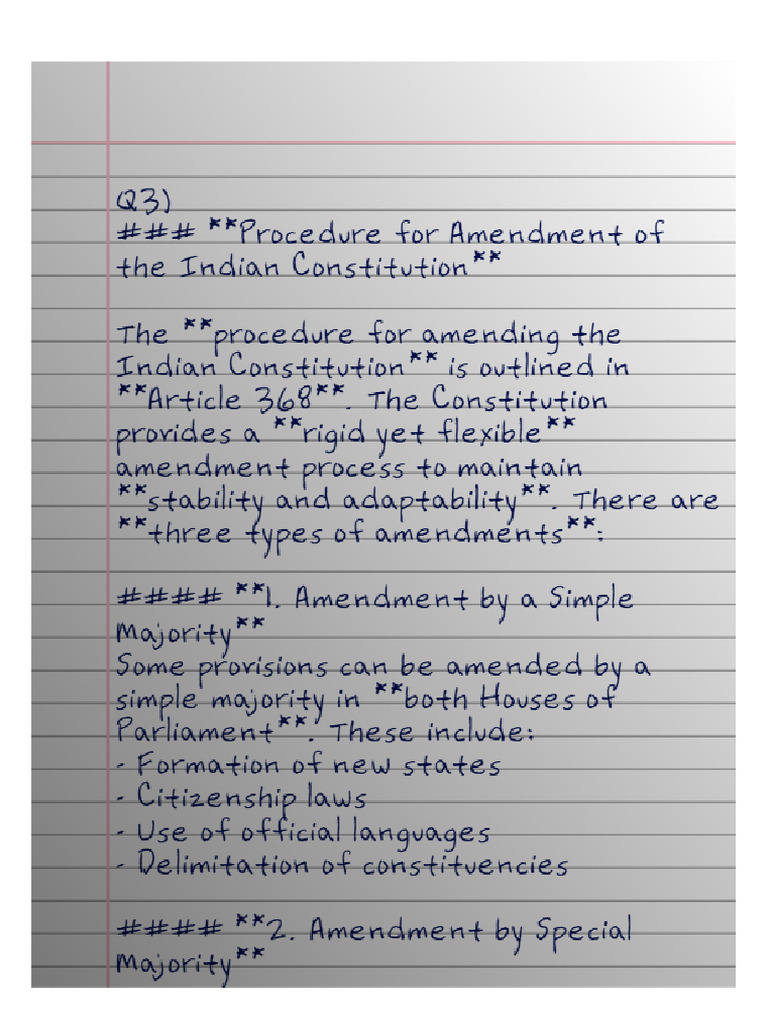 Q3)
### **Procedure for Amendment of
the Indian Constitution**
The **procedure for amending the
Indian Constitution** is outlined in
**Article 368**. The Constitution
provides a **rigid yet flexible**
amendment process to maintain
**stability and adaptability**. There are
**three types of amendments**:
#### **1. Amendment by a Simple
Majority**
Some provisions can be amended by a
simple majority in **both Houses of
Parliament**. These include:
- Formation of new states
- Citizenship laws
- Use of official languages
- Delimitation of constituencies
#### **2. Amendment by Special
Majority**